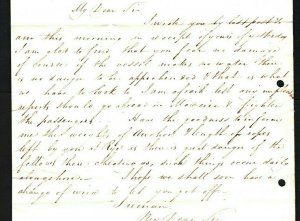 My Dear Sir
I wrote you by last post & I
am this morning in receipt of yours of yesterday
I am glad to find that you fear no damage
of course if the vessel makes no water there
is no danger to be apprehended & that is what
we have to look to I am afraid lest any
reports should go abroad in & frighten
the passengers. Have the goodness to inform
me the weight of Anchor & length of rope
left by you at as there is great danger of the
fellows there cheating us, such things occur daily
I hope we shall soon have a
change of wind to let you get off
I remain
My Dear Sir